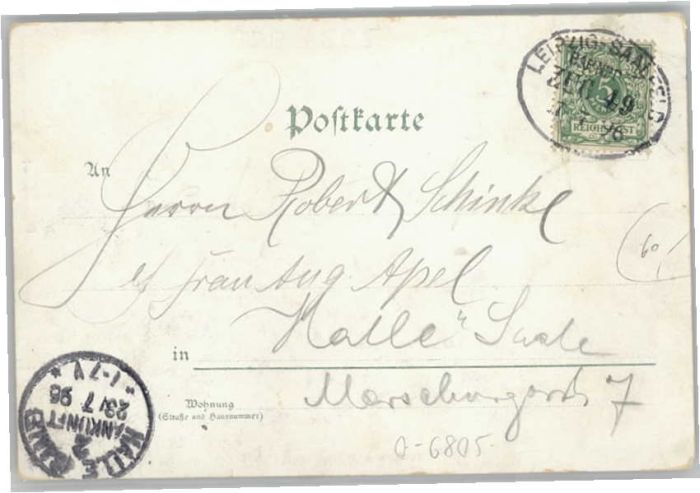 LEIPZIG-SAALFELD
BAHNPOST
ZUG 49
96
5
REICHSPOST
Postkarte
An
Herrn Robert Schinke
Frau Aug. Apel
60
Halle "Saale
in
Merseburgerstr. 7
Wohnung
(Straße und Hausnummer)
0-6805-
HALLE (SAALE)
2
ANKUNFT
23/7 96
*1-7V*